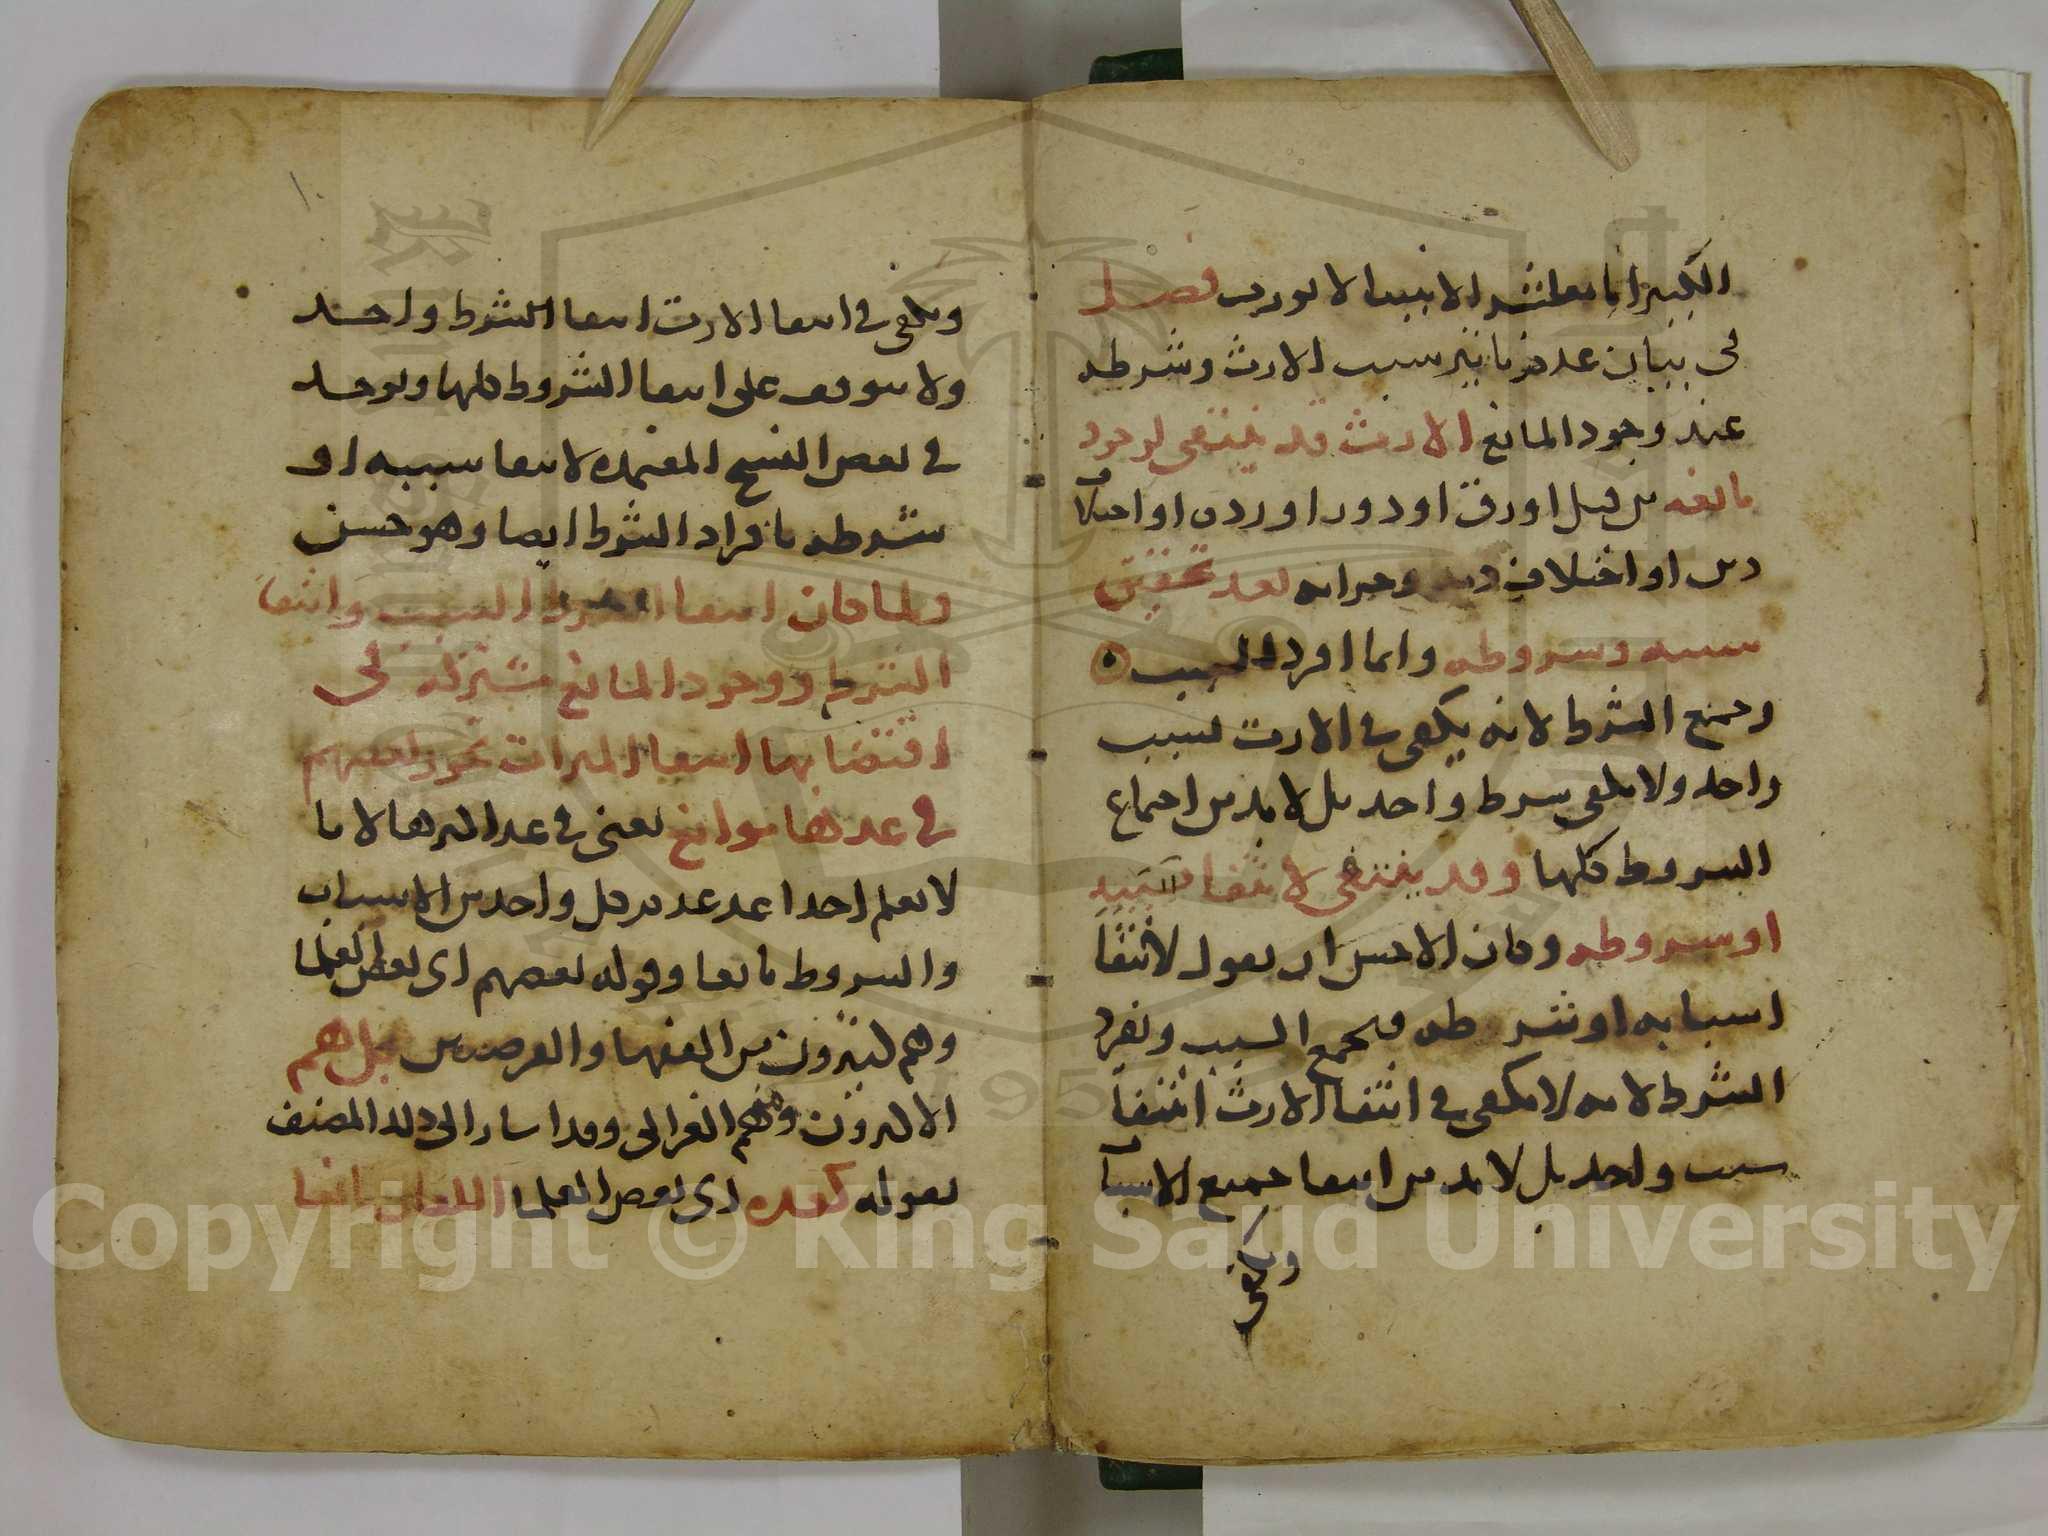 الكبير انا معاشر الانبياء لا نورث فصل
في بيان عدم تاثير سبب الارث وشرطه
عند وجود المانع الارث قد ينتفى لوجود
مانعه من قتل او رق او دور او رده او اختلا
دين او اختلاف وحرابه بعد تحقق
سببه وشروطه وانما افرد السبب
وجمع الشرط لانه يكفى فى الارث سبب
واحد ولا يكفى شرط واحد بل لا بد من اجتماع
الشروط كلها وقد ينتفى لانتفا سببه
او شروطه وكان الاحسن ان يقول لانتفا
اسبابه او شرطه فيجمع السبب ويفرد
الشرط لانه لا يكفى فى انتفا الارث انتفا
سبب واحد بل لا بد من انتفا جميع الاسبا
ويكفى
١٠
ويكفى فى انتفا الارث انتفا الشرط واحد
ولا يتوقف على انتفا الشروط كلها ويوجد
فى بعض النسخ المعتمده لانتفا سببه او
شرطه بافراد الشرط ايضا وهو حسن
ولما كان انتفا السبب وانتفا
الشرط ووجود المانع مشتركه فى
اقتضائها انتفا الميراث تجوز بعضهم
فى عدها موانع يعنى فى عد اكثرها لانا
لا نعلم احدا عد عدم كل واحد من الاسباب
والشروط مانعا وقوله بعضهم اى بعض العلما
وهم كثيرون من الفقها والفرضيين بل هم
الاكثرون ومنهم الغزالى وقد اشار الى ذلك المصنف
بقوله كعده اى بعض العلما اللعان انفا
Copyright © King Saud University
1957